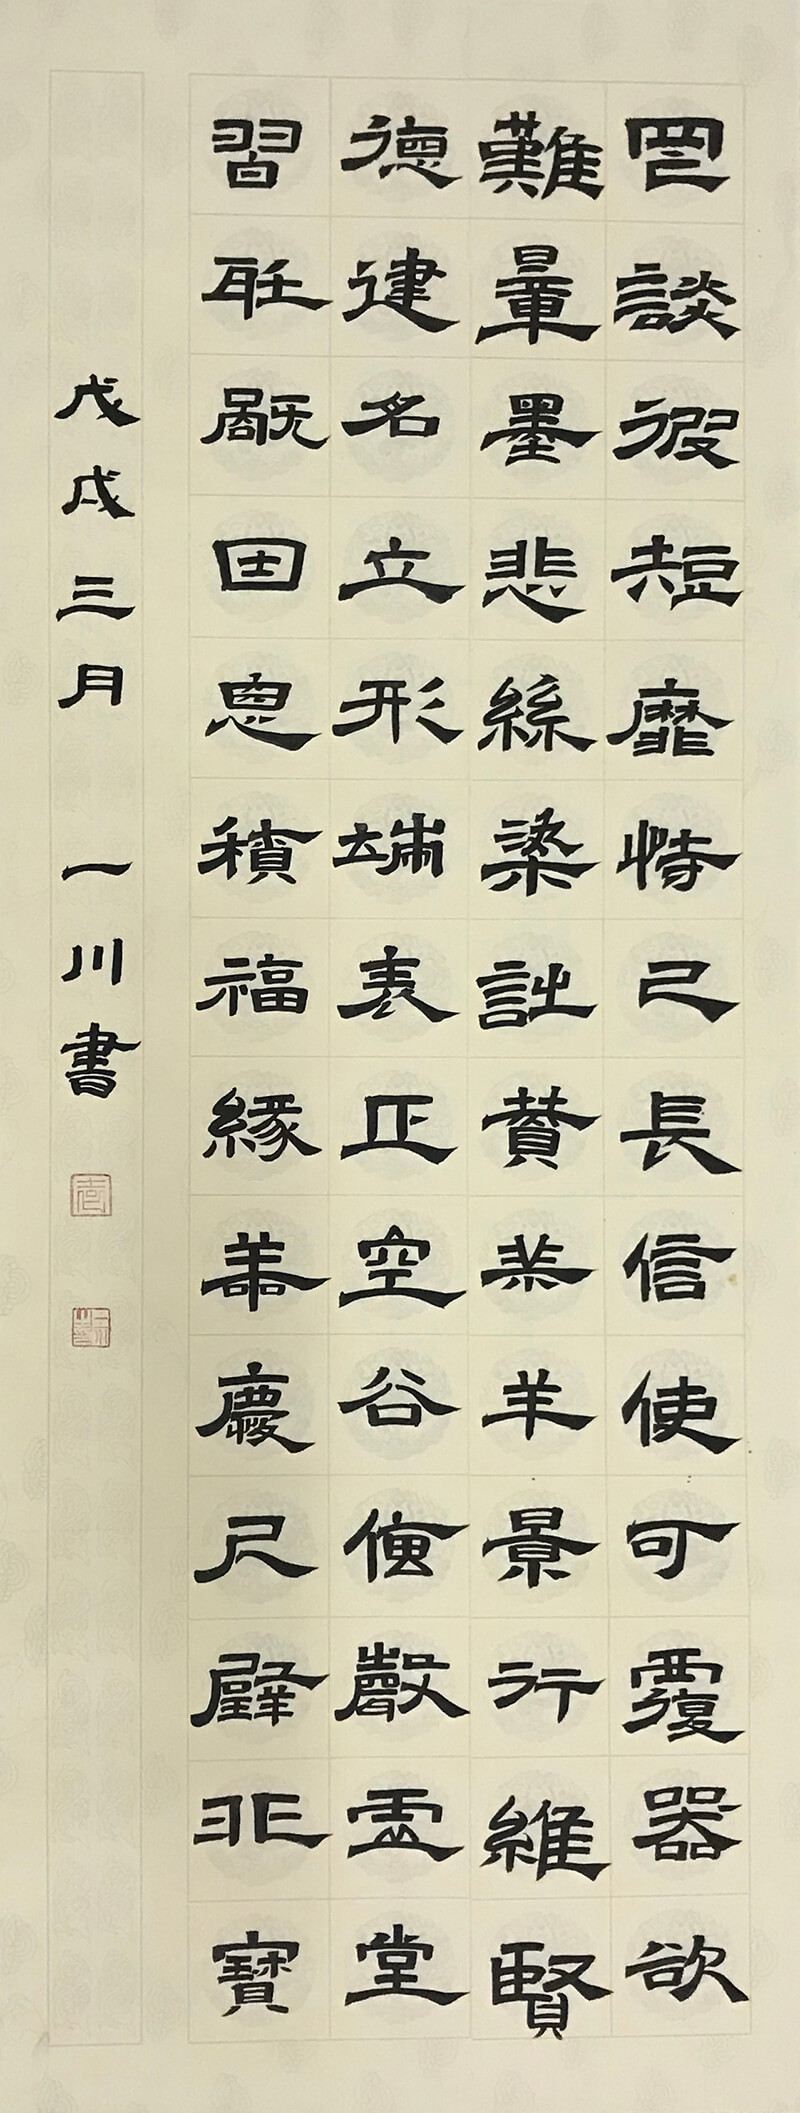 罔談彼短靡恃己長信使可覆器欲
難量墨悲絲染詩贊羔羊景行維賢
德建名立形端表正空谷傳聲虛堂
習聽禍因惡積福緣善慶尺璧非寶
戊戌三月 一川書